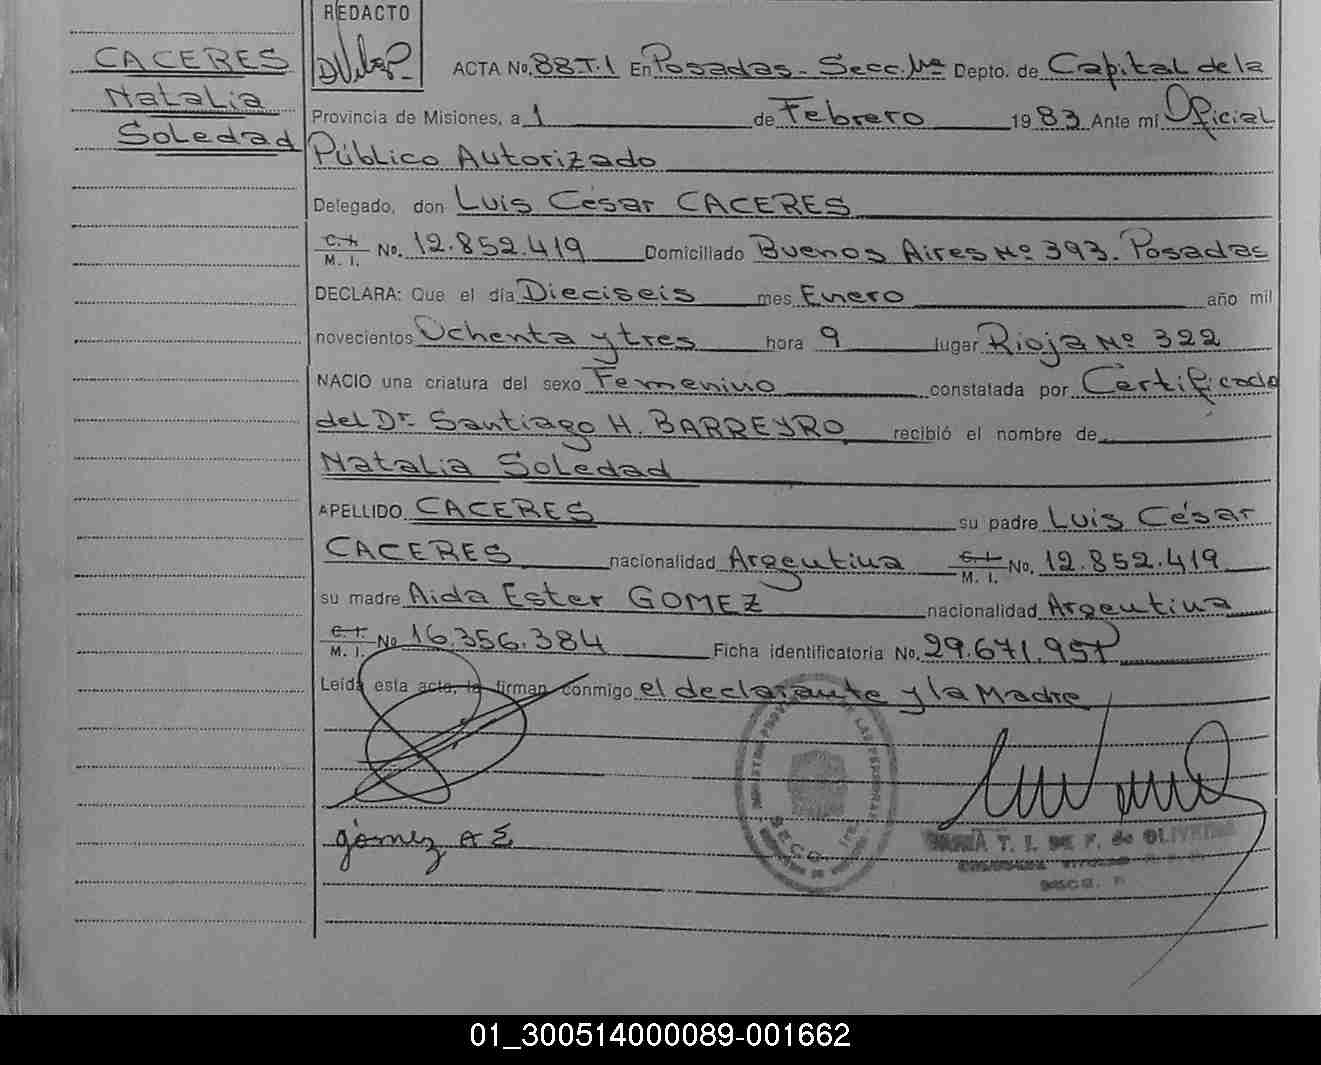 CACERES
Natalia
Soledad
REDACTO
ACTA No. 88-T.1 En Posadas - Secc. Depto. de Capital de la
Provincia de Misiones, a 1 de Febrero 1983 Ante mi Oficial
Público Autorizado
Delegado, don Luis César CACERES
C. I. M. I. No. 12.852.419 Domiciliado Buenos Aires Nº 393. Posadas
DECLARA: Que el día Dieciseis mes Enero año mil
novecientos Ochenta y tres hora 9 lugar Rioja Nº 322
NACIO una criatura del sexo Femenino constatada por Certificado
del Dr. Santiago H. BARREYRO recibió el nombre de
Natalia Soledad
APELLIDO CACERES su padre Luis César
CACERES nacionalidad Argentina C. I. M. I. No. 12.852.419
su madre Aida Ester GOMEZ nacionalidad Argentina
C. I. M. I. No 16.356.384 Ficha identificatoria No. 29.671.957
Leída esta acta, la firman conmigo el declarante y la Madre
gómez A E
T. I. DE F. de OLIVEIRA
01_300514000089-001662